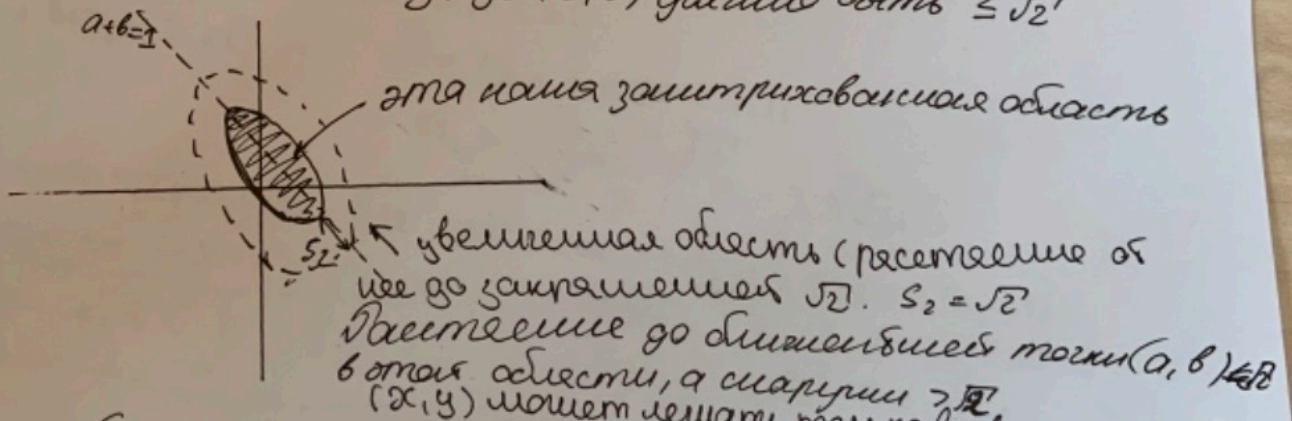 быть ≤ √2
a+b=1
эта наша заштрихованная область
S₂
увеличенная область (расстояние от
нее до закрашенной √2. S₂ = √2
Расстояние до ближайшей точки (a, b) ≤ √2
в этой области, а снаружи > √2.
(x, y) может лежать